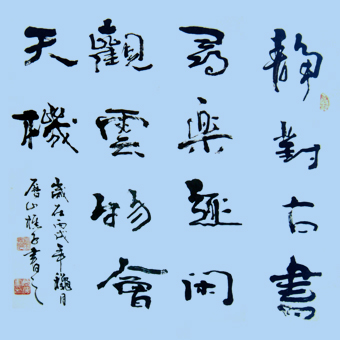 靜對古書
尋樂趣閑
觀雲物會
天機
歲在丙戌年月
山樵子書之